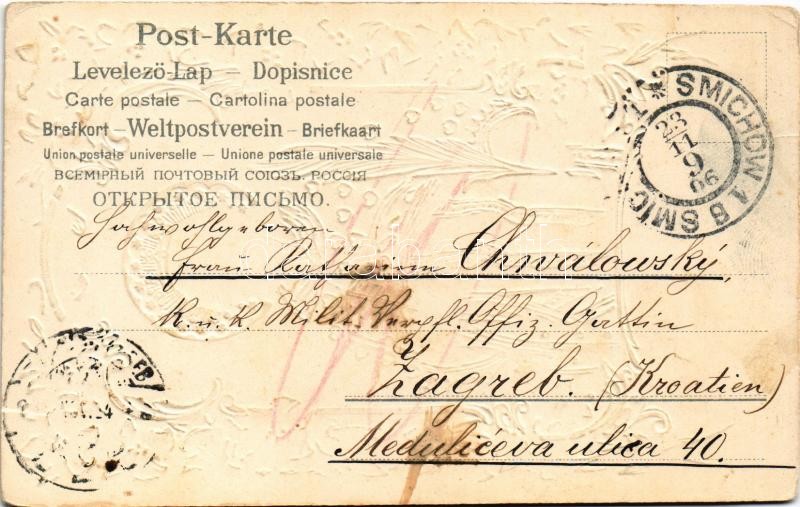 Post-Karte
Levelezö-Lap — Dopisnice
Carte postale — Cartolina postale
Brefkort — Weltpostverein — Briefkaart
Union postale universelle — Unione postale universale
ВСЕМІРНЫЙ ПОЧТОВЫЙ СОЮЗЪ. РОССІЯ
ОТКРЫТОЕ ПИСЬМО.
SMICHOW A B SMIC
23
11
9
06
Hochwohlgeboren
Frau Katharine Chwálowský,
K. u. K. Milit. Verpfl. Offiz. Gattin
Zagreb. (Kroatien)
Medulićeva ulica 40.